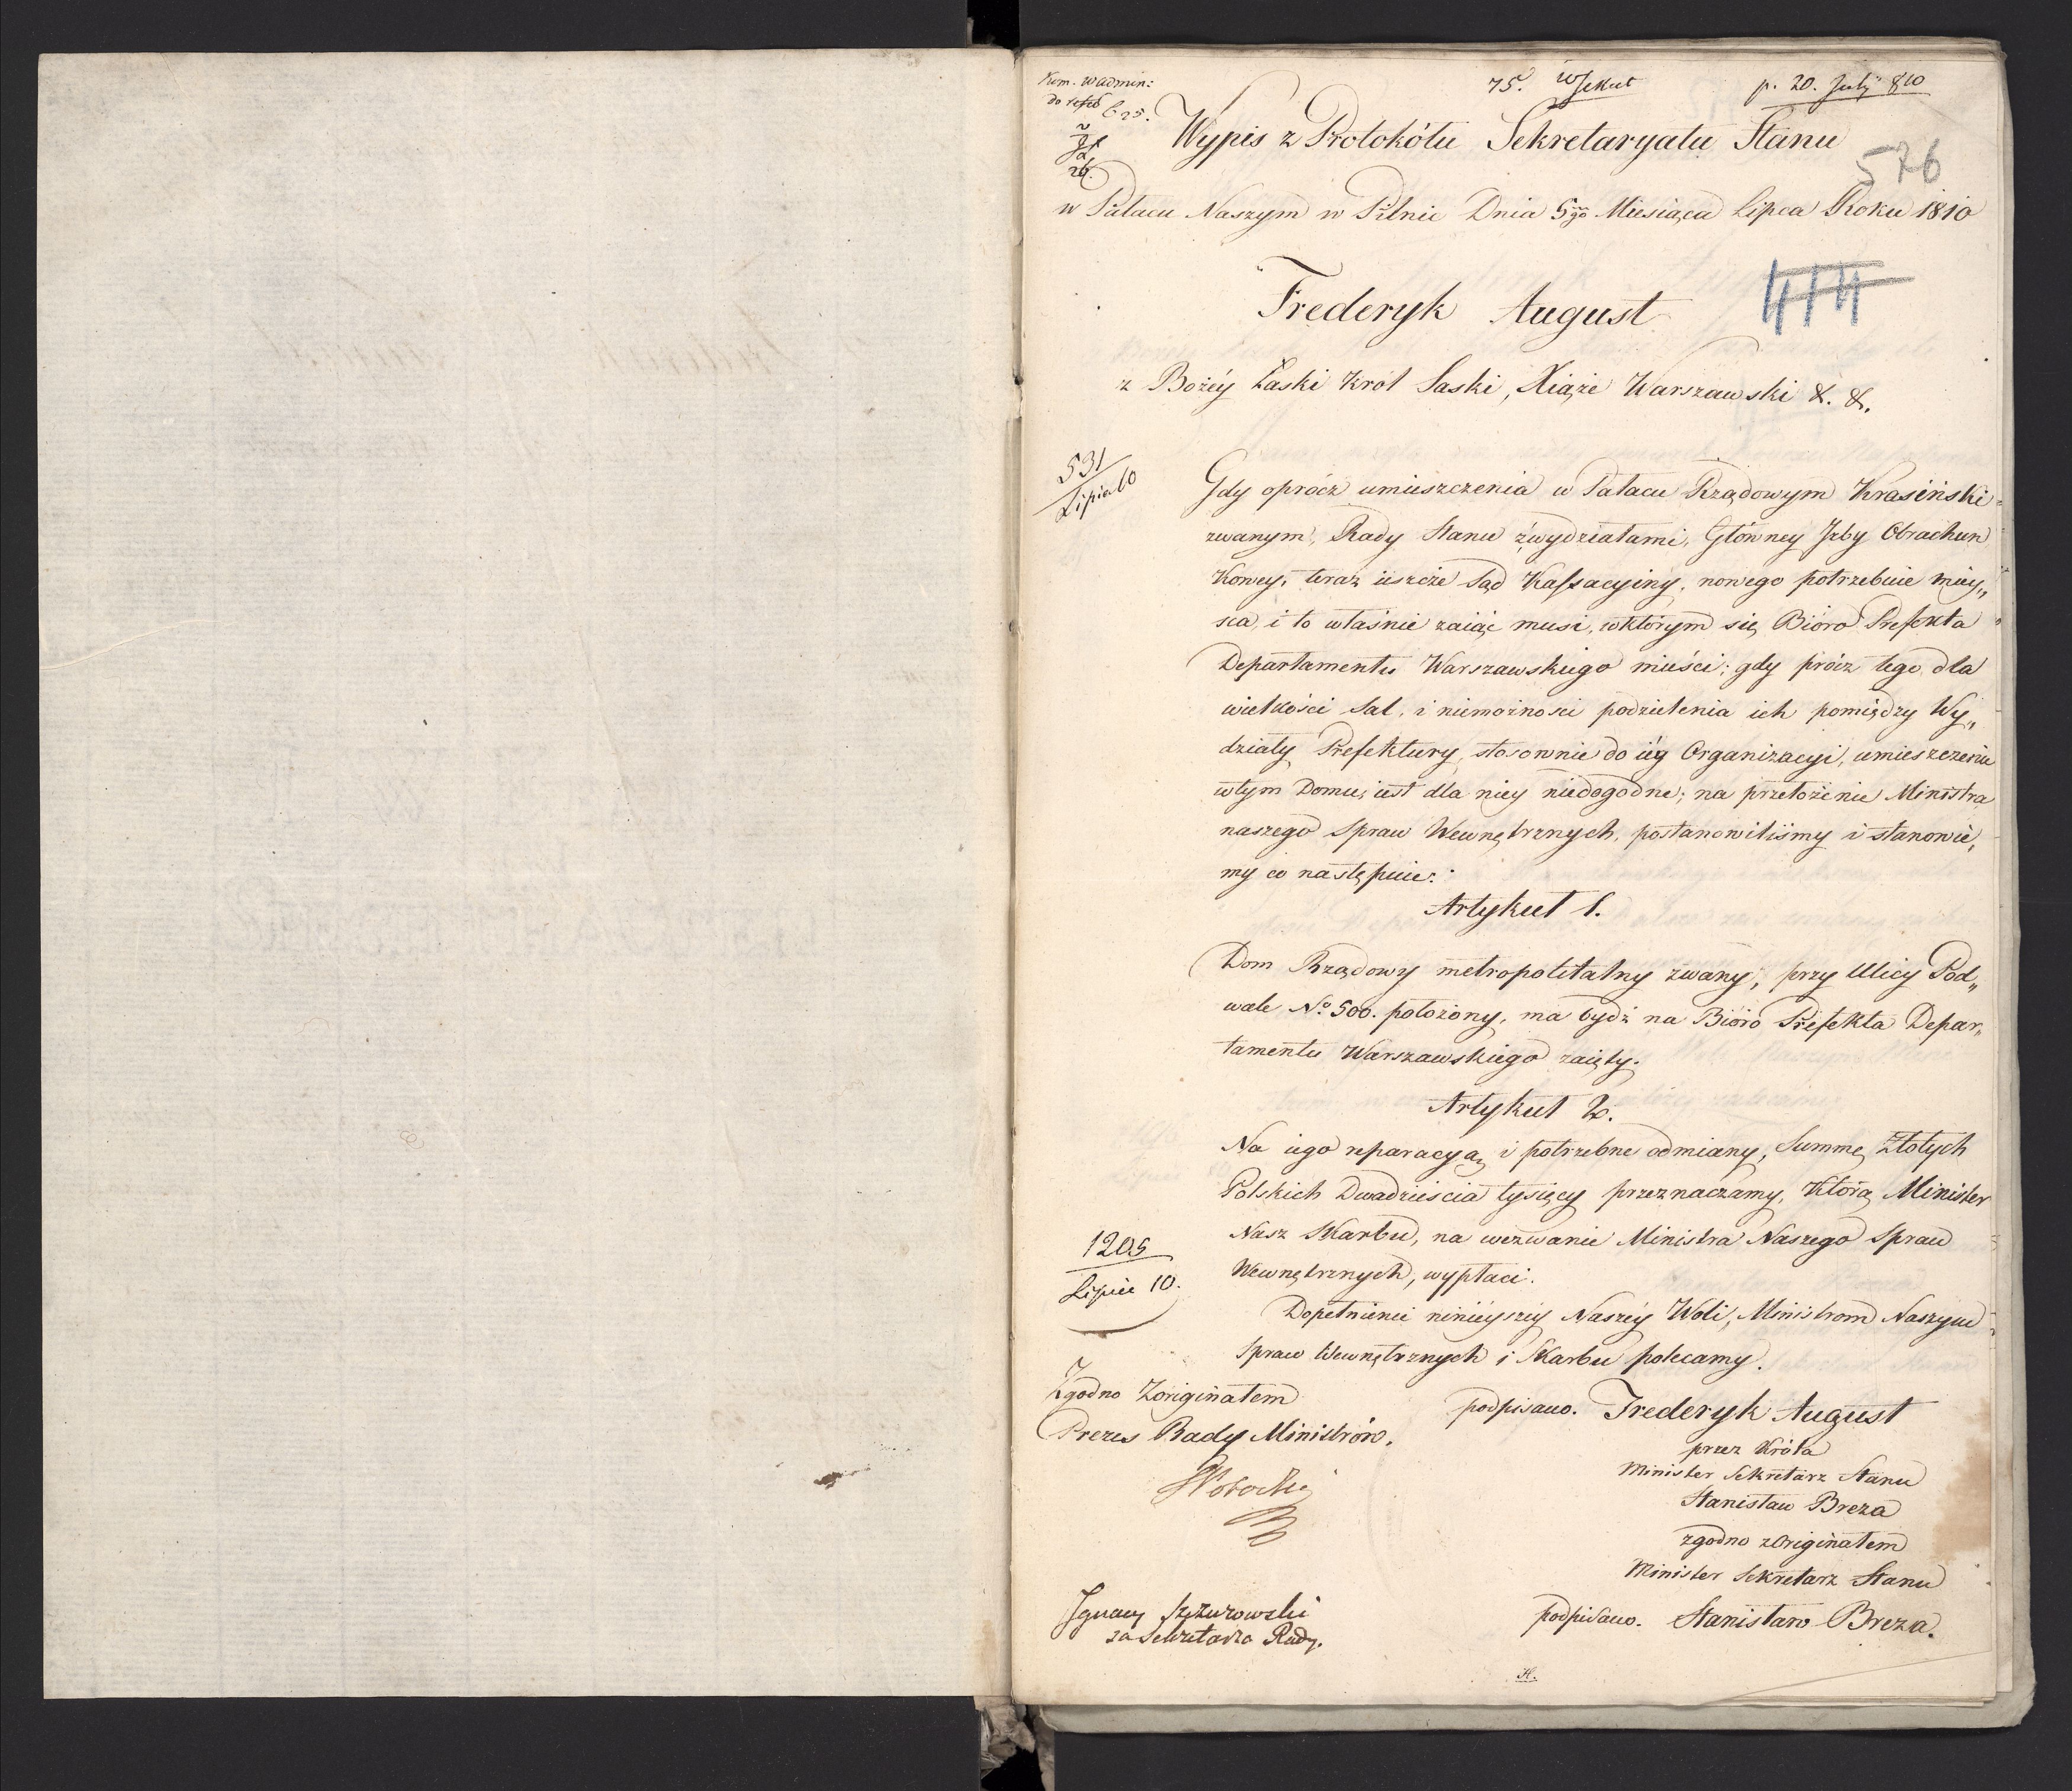 Kom. w admin:
75. p. 20. July 810
Wypis z Protokółu Sekretaryatu Stanu
576
w Pałacu Naszym w Pilnic Dnia 5go Miesiąca Lipca Roku 1810
Frederyk August
414
z Bożéy Łaski Król Saski, Xiąże Warszawski &. &.
531
Lipca 10
Gdy oprócz umieszczenia w Pałacu Rządowym Krasiński
zwanym, Rady Stanu z wydziałami, Głównéy Jzby Obrachun
kowey, teraz ieszcze Sąd Kassacyiny, nowego potrzebuie miey„
sca, i to właśnie zaiąć musi, w którym się Bióro Prefekta
Departamentu Warszawskiego mieści; gdy prócz tego dla
wielkości Sal, i niemożności podzielenia ich pomiędzy Wy„
działy Prefektury, stosownie do iéy Organizacyi, umieszczenie
w tym Domu, iest dla niey niedogodne; na przełożenie Ministra
naszego Spraw Wewnętrznych, postanowiliśmy i stanowie„
my co następuie:
Artykuł 1.
Dom Rządowy metropolitalny zwany, przy Ulicy Pod„
wale No. 500. położony, ma bydź na Bióro Prefekta Depar„
tamentu Warszawskiego zaięty.
Artykuł 2.
Na iego reparacyą i potrzebne odmiany, Summę Złotych
Polskich Dwadzieścia tysięcy przeznaczamy, którą Minister
Nasz Skarbu, na wezwanie Ministra Naszego Spraw
Wewnętrznych, wypłaci.
1205
Lipiec 10.
Dopełnienie ninieyszéy Naszéy Woli, Ministrom Naszym
Spraw Wewnętrznych i Skarbu polecamy.
Zgodno Zoriginałem
Prezes Rady Ministrów.
podpisano. Frederyk August
przez Króla
Minister Sekretarz Stanu
Stanisław Breza
zgodno zOriginałem
Minister Sekretarz Stanu
podpisano. Stanisław Breza.
Ignacy
za Sekretarza Rady.